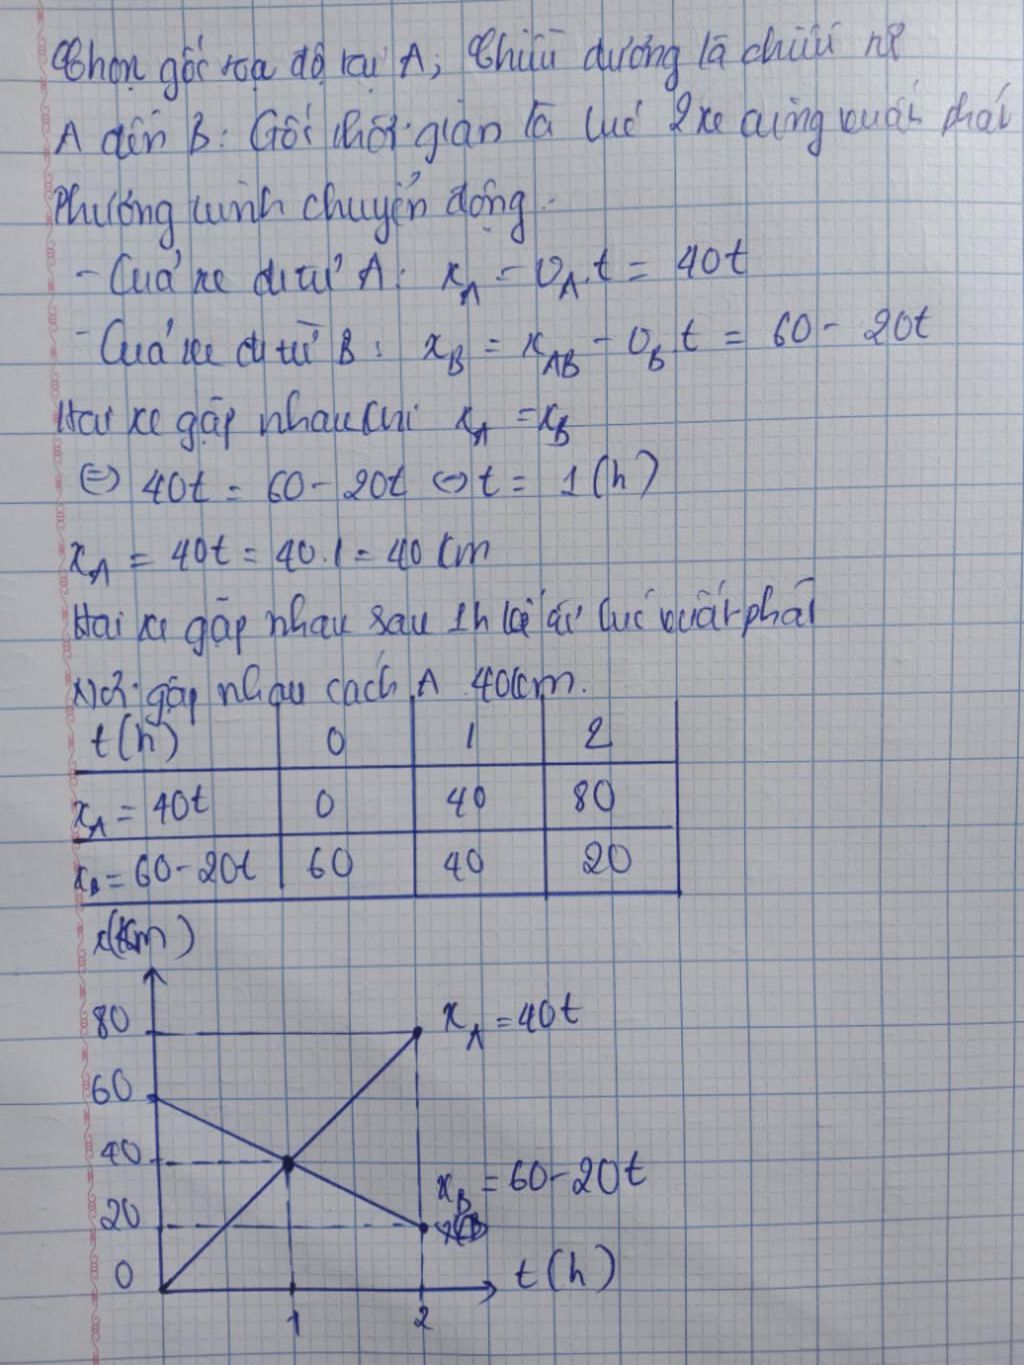 Chọn gốc tọa độ tại A; Chiều dương là chiều từ
A đến B: Gốc thời gian là lúc 2 xe cùng xuất phát
Phương trình chuyển động.
- Của xe đi từ A: x_A = v_A.t = 40t
- Của xe đi từ B: x_B = x_AB - v_B.t = 60 - 20t
Hai xe gặp nhau khi x_A = x_B
⇔ 40t = 60 - 20t ⇔ t = 1 (h)
x_A = 40t = 40.1 = 40 km
Hai xe gặp nhau sau 1h kể từ lúc xuất phát
Nơi gặp nhau cách A 40km.
t(h) 0 1 2
x_A = 40t 0 40 80
x_B = 60-20t 60 40 20
x(km)
80 x_A = 40t
60
40
x_B = 60-20t
20
0 t(h)
1 2